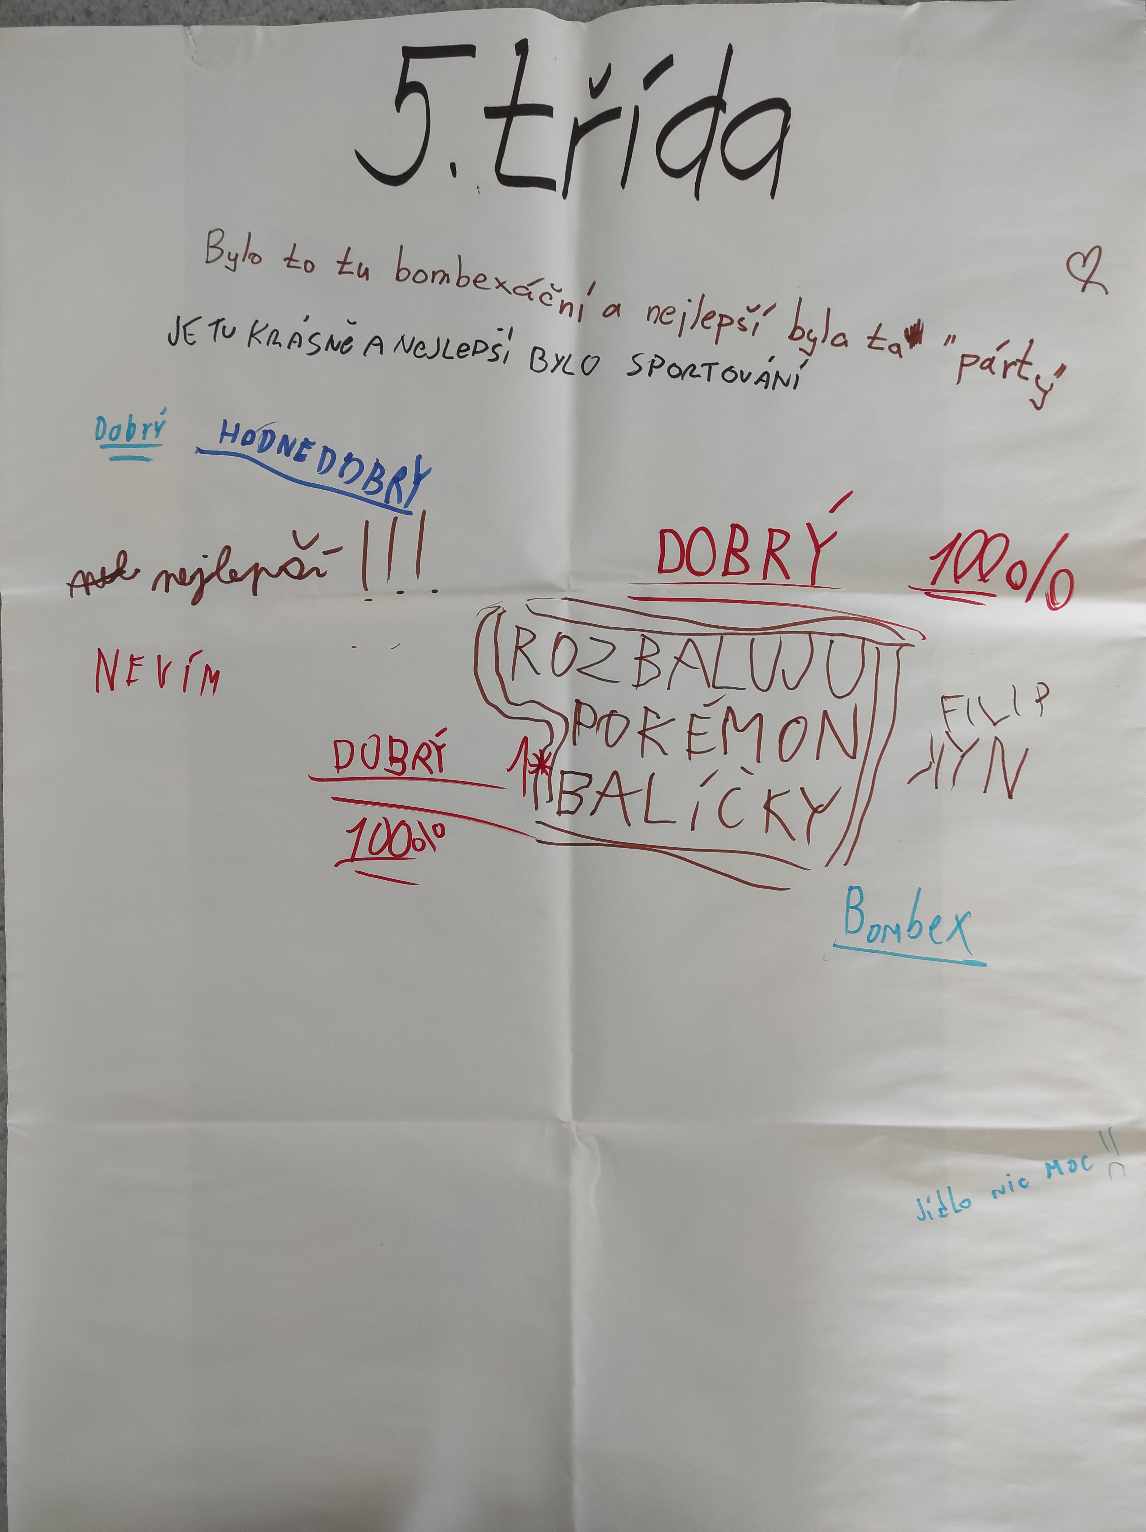 5. třída
Bylo to tu bombexáční a nejlepší byla ta "párty"
JE TU KRÁSNĚ A NEJLEPŠÍ BYLO SPORTOVÁNÍ
Dobrý
HODNE DOBRÝ
nejlepší !!!
DOBRÝ 100%
NEVÍM
ROZBALUJU
POKÉMON
BALÍČKY
FILIP
KYN
DOBRÝ 1*
100%
Bombex
Jídlo nic moc !!